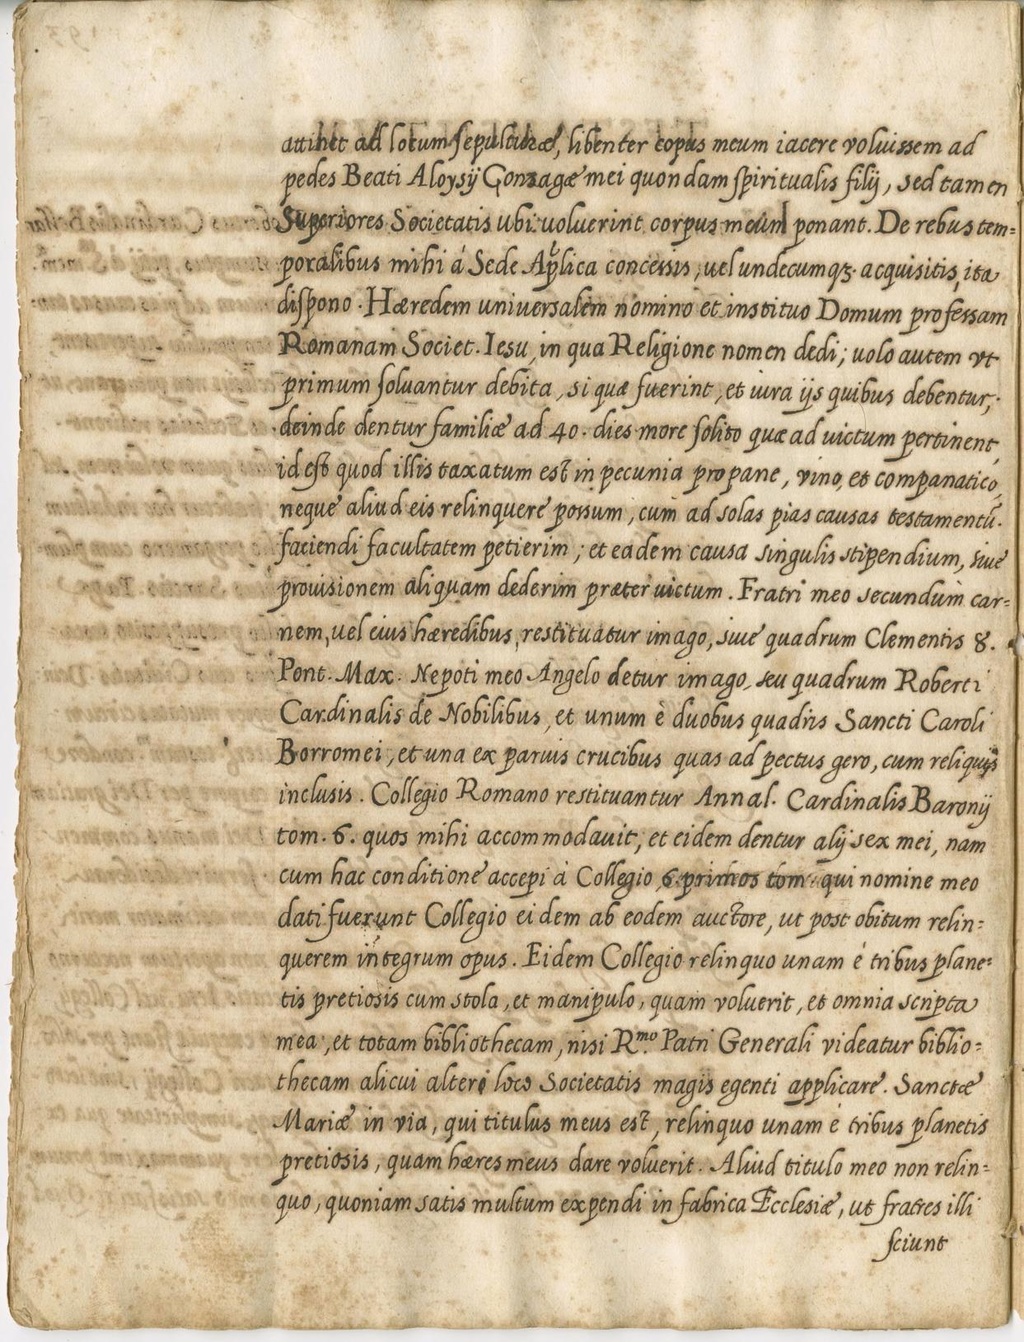 attinet ad locum sepulturæ, libenter copus meum iacere voluissem ad
pedes Beati Aloysÿ Gonzagæ mei quondam spiritualis filÿ, sed tamen
Superiores Societatis ubi uoluerint corpus meum ponant. De rebus tem=
poralibus mihi à Sede Aplica concessis, uel undecumq3. acquisitis, ita
dispono. Hæredem universalem nomino et instituo Domum professam
Romanam Societ. Iesu, in qua Religione nomen dedi; uolo autem vt
primum soluantur debita, si quæ fuerint, et iura ijs quibus debentur;
deinde dentur familiæ ad 40. dies more solito quæ ad uictum pertinent,
id est quod illis taxatum est in pecunia pro pane, vino, et companatico,
neque aliud eis relinquere possum, cum ad solas pias causas testamentū.
faciendi facultatem petierim; et eadem causa singulis stipendium, siue
prouisionem aliquam dederim præter uictum. Fratri meo secundum car=
nem, uel eius hæredibus, restituatur imago, siue quadrum Clementis 8.
Pont. Max. Nepoti meo Angelo detur imago, seu quadrum Roberti
Cardinalis de Nobilibus, et unum è duobus quadris Sancti Caroli
Borromei, et una ex paruis crucibus quas ad pectus gero, cum reliquijs
inclusis. Collegio Romano restituantur Annal. Cardinalis Baronÿ
tom. 6. quos mihi accommodauit, et eidem dentur alÿ sex mei, nam
cum hac conditione accepi à Collegio 6. primos tom. qui nomine meo
dati fuerunt Collegio eidem ab eodem auctore, ut post obitum relin=
querem integrum opus. Eidem Collegio relinquo unam è tribus plane=
tis pretiosis cum stola, et manipulo, quam voluerit, et omnia scripta
mea, et totam bibliothecam, nisi R.mo Patri Generali videatur biblio=
thecam alicui alteri loco Societatis magis egenti applicare. Sanctæ
Mariæ in via, qui titulus meus est, relinquo unam è tribus planetis
pretiosis, quam hæres meus dare voluerit. Aliud titulo meo non relin=
quo, quoniam satis multum expendi in fabrica Ecclesiæ, ut fratres illi
sciunt